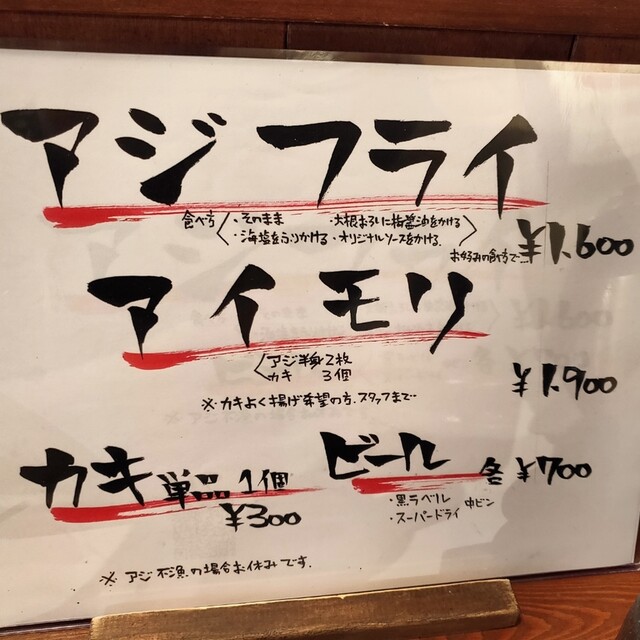 アジフライ
食べ方
・そのまま ・大根おろしに梅醤油をかける
・海塩をふりかける ・オリジナルソースをかける
お好みの食べ方で… ¥1.600
アイモリ
アジ半身2枚
カキ 3個
¥1.900
※カキよく揚げ希望の方、スタッフまで…
カキ単品 1個
¥300
ビール 各¥700
・黒ラベル 中ビン
・スーパードライ
※ アジ不漁の場合お休みです。